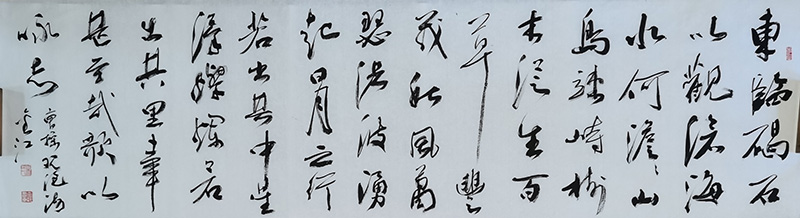 東臨碣石
以觀滄海
水何澹々山
島竦峙樹
木叢生百
草豐
茂秋風蕭
瑟洪波湧
起日月之行
若出其中星
漢燦爛若
出其里幸
甚至哉歌以
詠志
曹操观沧海